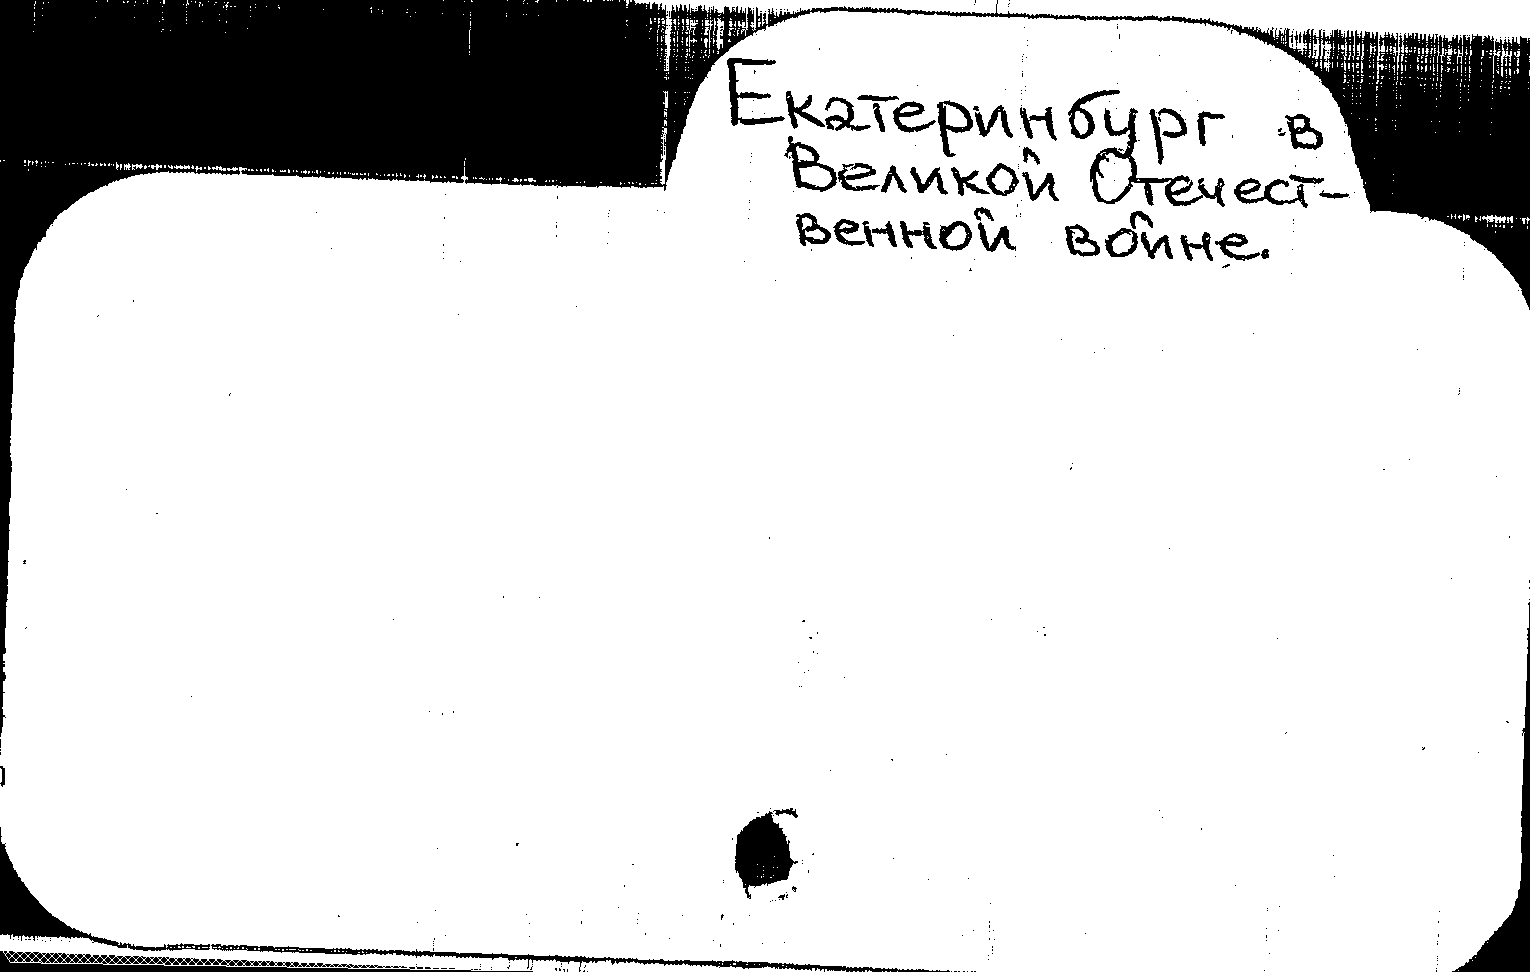 Екатеринбург в
Великой Отечест-
венной войне.